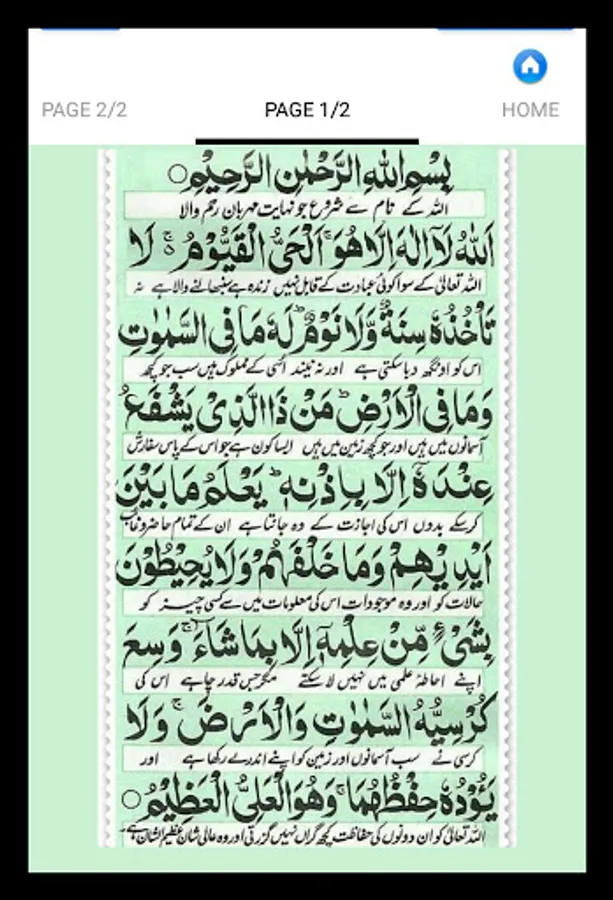 PAGE 2/2 PAGE 1/2 HOME
بِسْمِ اللهِ الرَّحْمٰنِ الرَّحِيْمِ○
اللہ کے نام سے شروع جو نہایت مہربان رحم والا
اَللهُ لَآ اِلٰهَ اِلَّا هُوَ ۚ اَلْحَيُّ الْقَيُّوْمُ ۚ لَا
اللہ تعالیٰ کے سوا کوئی عبادت کے قابل نہیں زندہ ہے سنبھالنے والا ہے نہ
تَاْخُذُهٗ سِنَةٌ وَّلَا نَوْمٌ ؕ لَهٗ مَا فِي السَّمٰوٰتِ
اس کو اونگھ دبا سکتی ہے اور نہ نیند اسی کے مملوک ہیں سب جو کچھ
وَمَا فِي الْاَرْضِ ؕ مَنْ ذَا الَّذِيْ يَشْفَعُ
آسمانوں میں ہیں اور جو کچھ زمین میں ہیں ایسا کون ہے جو اس کے پاس سفارش
عِنْدَهٗٓ اِلَّا بِاِذْنِهٖ ؕ يَعْلَمُ مَا بَيْنَ
کر سکے بدوں اس کی اجازت کے وہ جانتا ہے ان کے تمام حاضر و غائب
اَيْدِيْهِمْ وَمَا خَلْفَهُمْ ۚ وَلَا يُحِيْطُوْنَ
حالات کو اور وہ موجودات اس کی معلومات میں سے کسی چیز کو
بِشَيْءٍ مِّنْ عِلْمِهٖٓ اِلَّا بِمَا شَآءَ ۚ وَسِعَ
اپنے احاطۂ علمی میں نہیں لا سکتے مگر جس قدر چاہے اس کی
كُرْسِيُّهُ السَّمٰوٰتِ وَالْاَرْضَ ۚ وَلَا
کرسی نے سب آسمانوں اور زمین کو اپنے اندر لے رکھا ہے اور
يَـُٔوْدُهٗ حِفْظُهُمَا ۚ وَهُوَ الْعَلِيُّ الْعَظِيْمُ○
اللہ تعالیٰ کو ان دونوں کی حفاظت کچھ گراں نہیں گزرتی اور وہ عالی شان عظیم الشان ہے۔